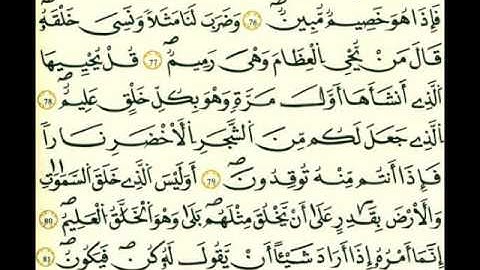 فَإِذَا هُوَ خَصِيمٌ مُّبِينٌ 76 وَضَرَبَ لَنَا مَثَلًا وَنَسِىَ خَلْقَهُۥ
قَالَ مَنْ يُّحْيِ الْعِظَامَ وَهْىَ رَمِيمٌ 77 قُلْ يُحْيِيهَا
الذِے أَنشَأَهَا أَوَّلَ مَرَّةٍ وَهْوَ بِكُلِّ خَلْقٍ عَلِيمٌ 78
الذِے جَعَلَ لَكُم مِّنَ الشَّجَرِ الْأَخْضَرِ نَارًا
فَإِذَا أَنتُم مِّنْهُ تُوقِدُونَ 79 أَوَلَيْسَ الذِے خَلَقَ السَّمَٰوَٰتِ
وَالْأَرْضَ بِقَٰدِرٍ عَلَىٰ أَنْ يَّخْلُقَ مِثْلَهُم بَلَىٰ وَهْوَ الْخَلَّٰقُ الْعَلِيمُ 80
إِنَّمَا أَمْرُهُۥ إِذَا أَرَادَ شَيْـًٔا أَنْ يَّقُولَ لَهُۥ كُن فَيَكُونُ 81